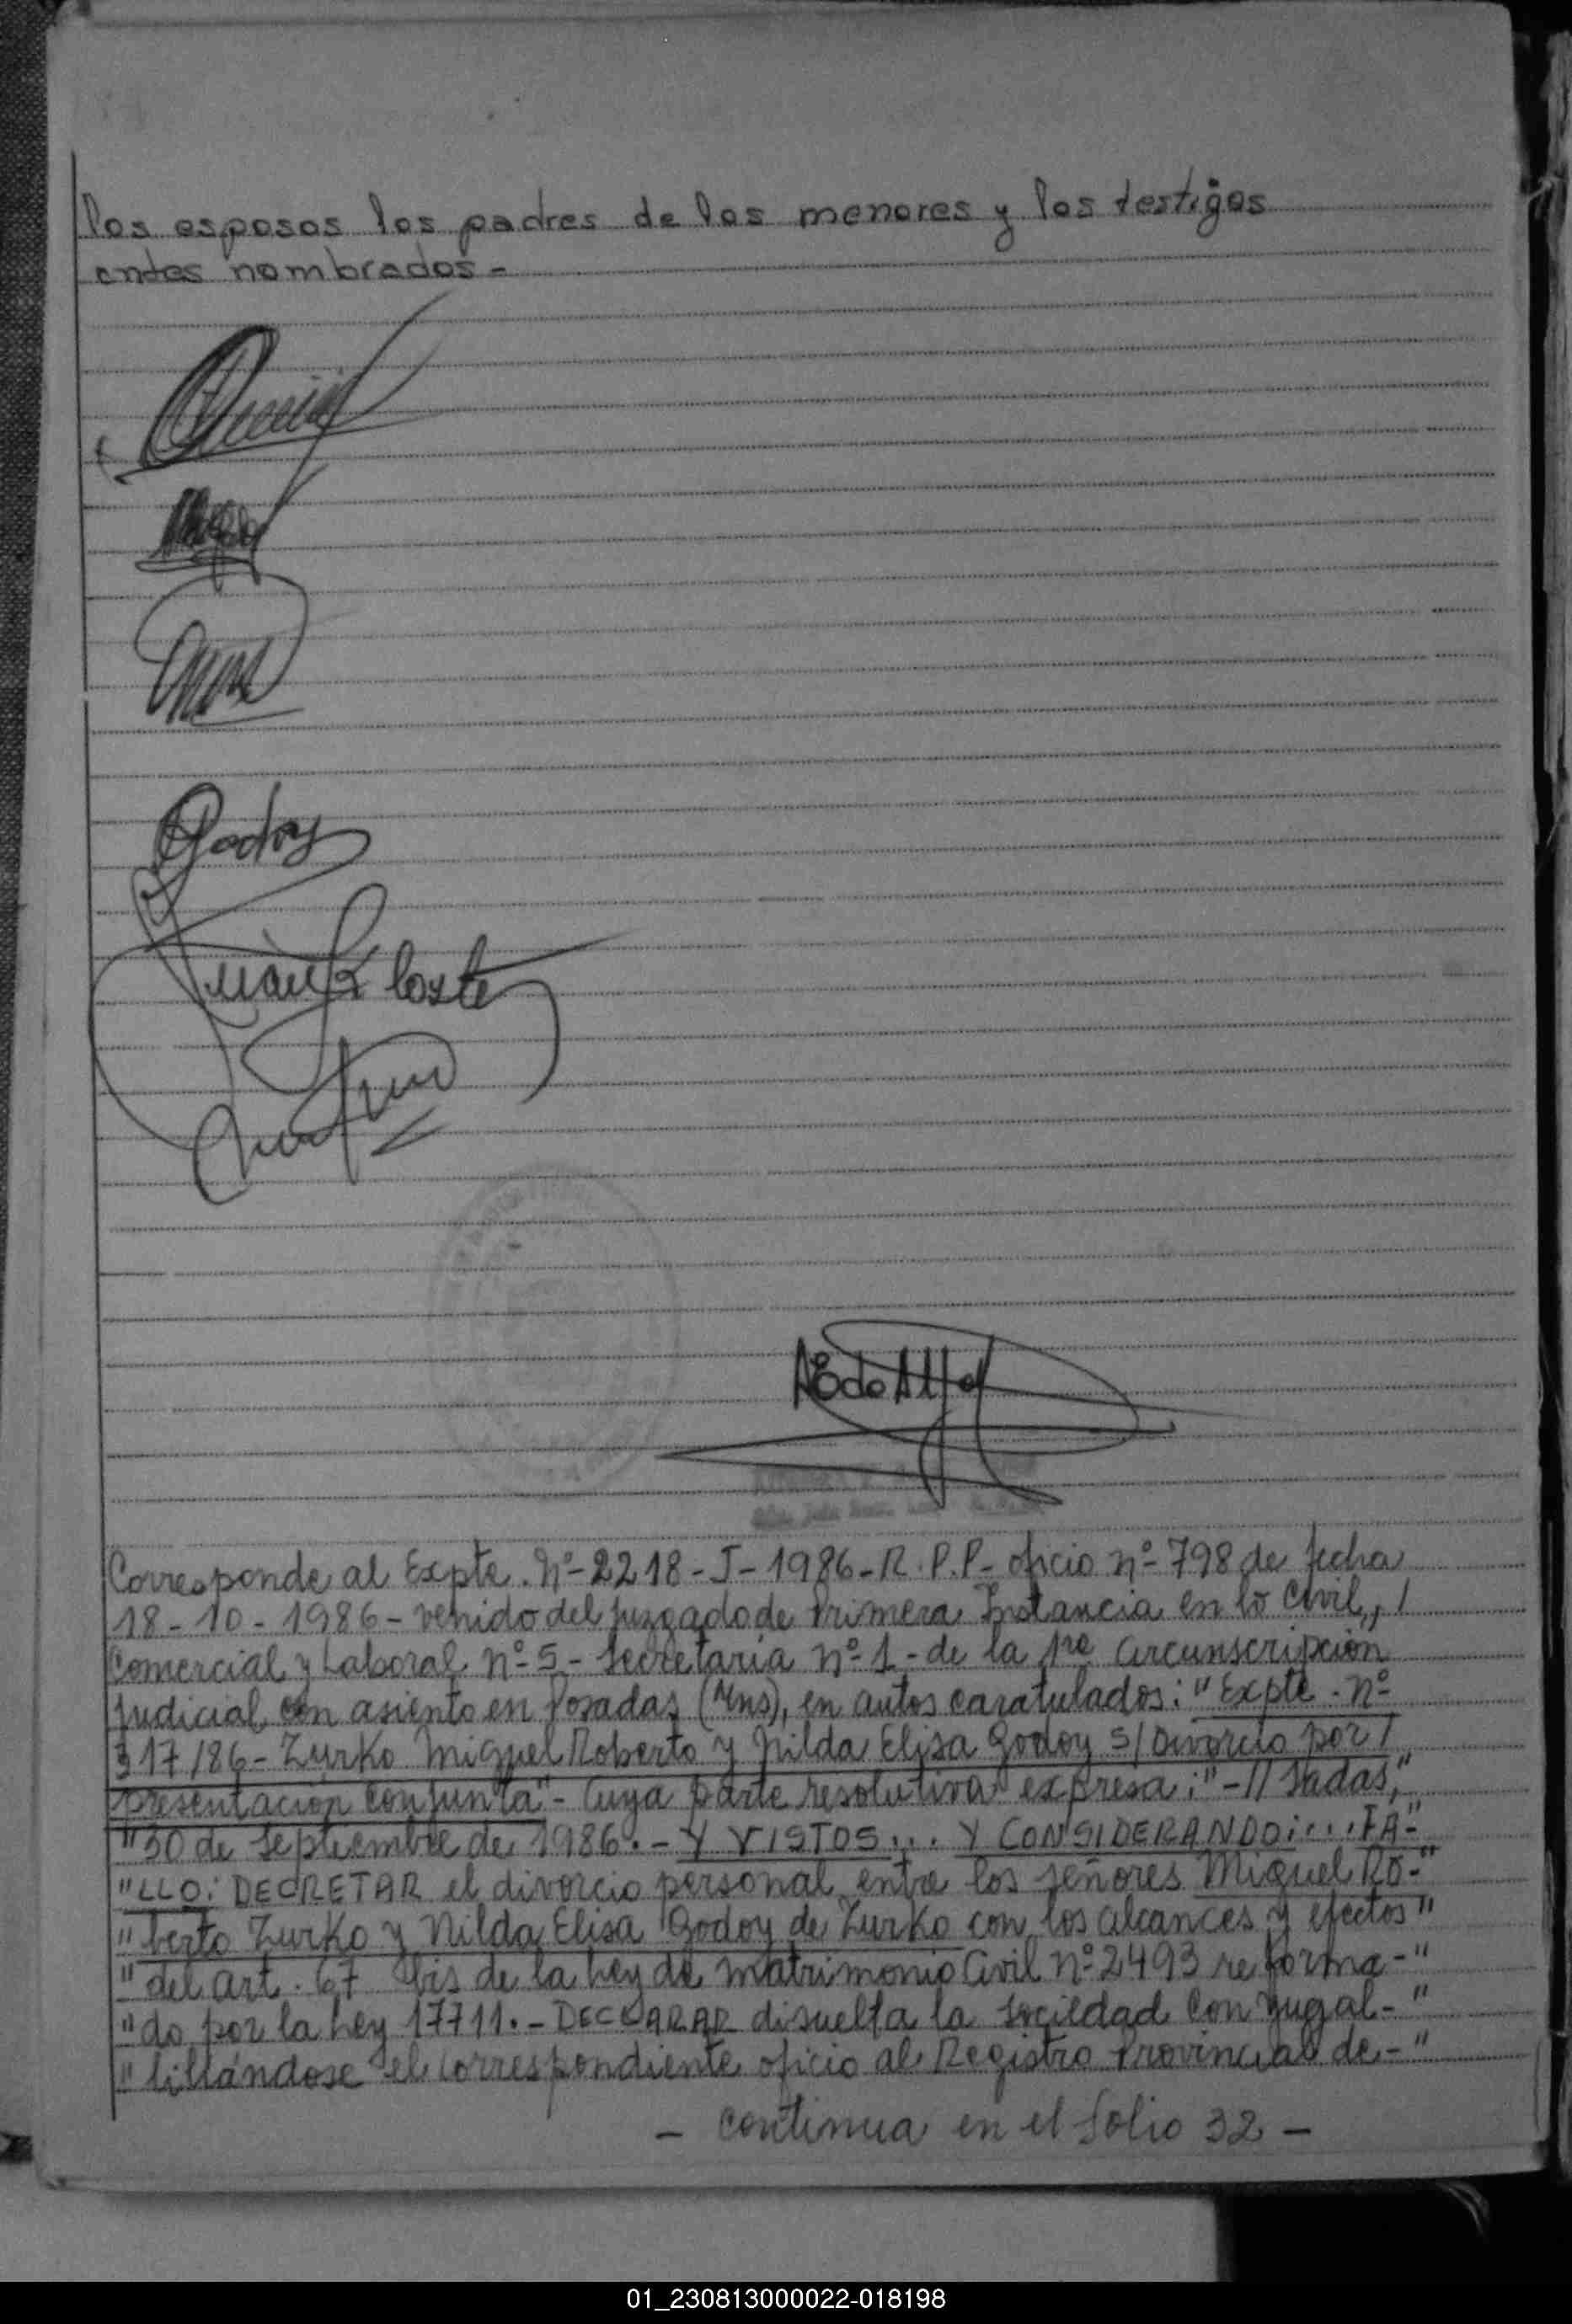 los esposos los padres de los menores y los testigos
antes nombrados -
Godoy
Corresponde al Expte. Nº- 2218 - I - 1986 - R. P. P - oficio nº- 798 de fecha
18 - 10 - 1986 - venido del Juzgado de Primera Instancia en lo Civil, /
Comercial y Laboral Nº- 5 - Secretaría Nº 1 - de la 1ra Circunscripción
Judicial con asiento en Posadas (Mns), en autos caratulados: "Expte. Nº
317/86 - Zurko Miguel Roberto y Nilda Elisa Godoy S/ Divorcio por /
presentación conjunta" - Cuya parte resolutiva expresa: " - // sadas, "
"30 de Septiembre de 1986. - Y VISTOS... Y CONSIDERANDO:... FA-"
"LLO: DECRETAR el divorcio personal entre los señores Miguel Ro-"
"berto Zurko y Nilda Elisa Godoy de Zurko con los alcances y efectos"
"del art. 67 bis de la Ley de Matrimonio Civil Nº 2493 reforma-"
"do por la Ley 17711. - DECLARAR disuelta la sociedad Conyugal - "
" el correspondiente oficio al Registro Provincial de - "
- Continua en el folio 32 -
01_230813000022-018198